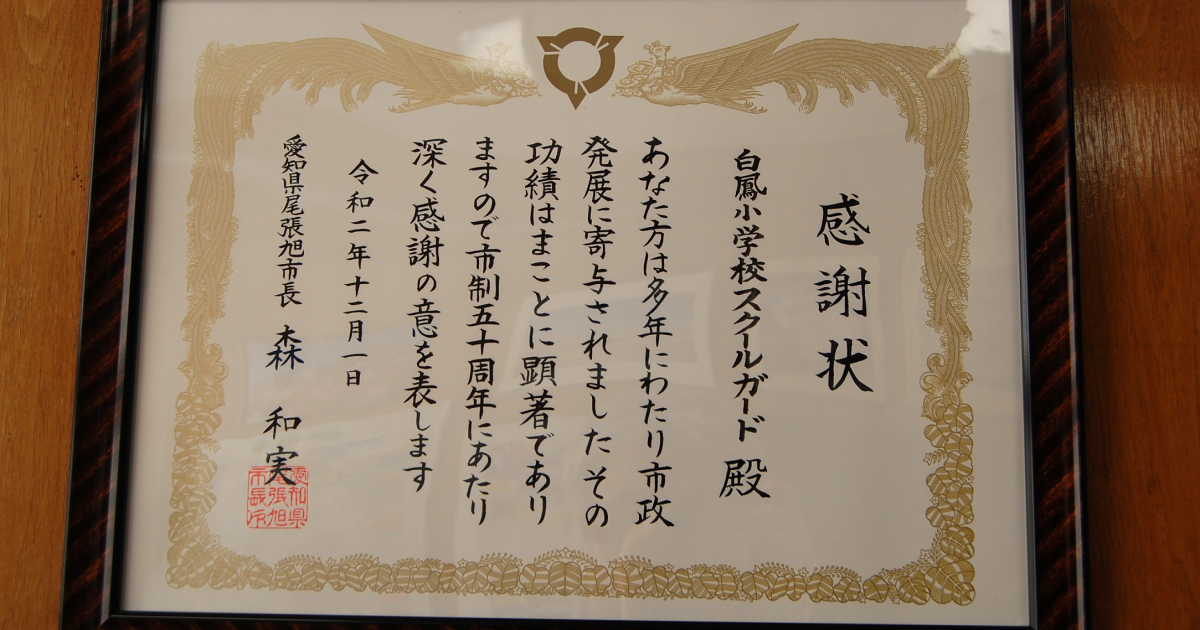 感謝状
白鳳小学校スクールガード 殿
あなた方は多年にわたり市政
発展に寄与されました その
功績はまことに顕著であり
ますので市制五十周年にあたり
深く感謝の意を表します
令和二年十二月一日
愛知県尾張旭市長 森 和実
愛知県
尾張旭
市長印